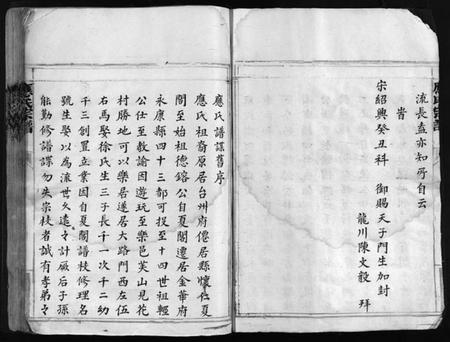 流長葢亦知所自云
旹
宋紹興癸丑科　御賜天子門生加封
龍川陳文毅　拜
應氏譜諜舊序
應氏祖裔原居台州府僊居縣懷仁夏
閣至始祖德鎔公自夏閣遷居金華府
永康縣四十三都可投至十四世祖輕
公仕至教諭因遊玩至樂邑芙山見花
村勝地可以樂居遂居大路門西左伍
右馬娶徐氏生三子長千一次千二幼
千三創置立業因自夏閣譜枝修理名
號生娶以為派世久遠々計厥后子孫
能勤修譜諜勿失宗枝者誠有孝弟々
應氏宗譜